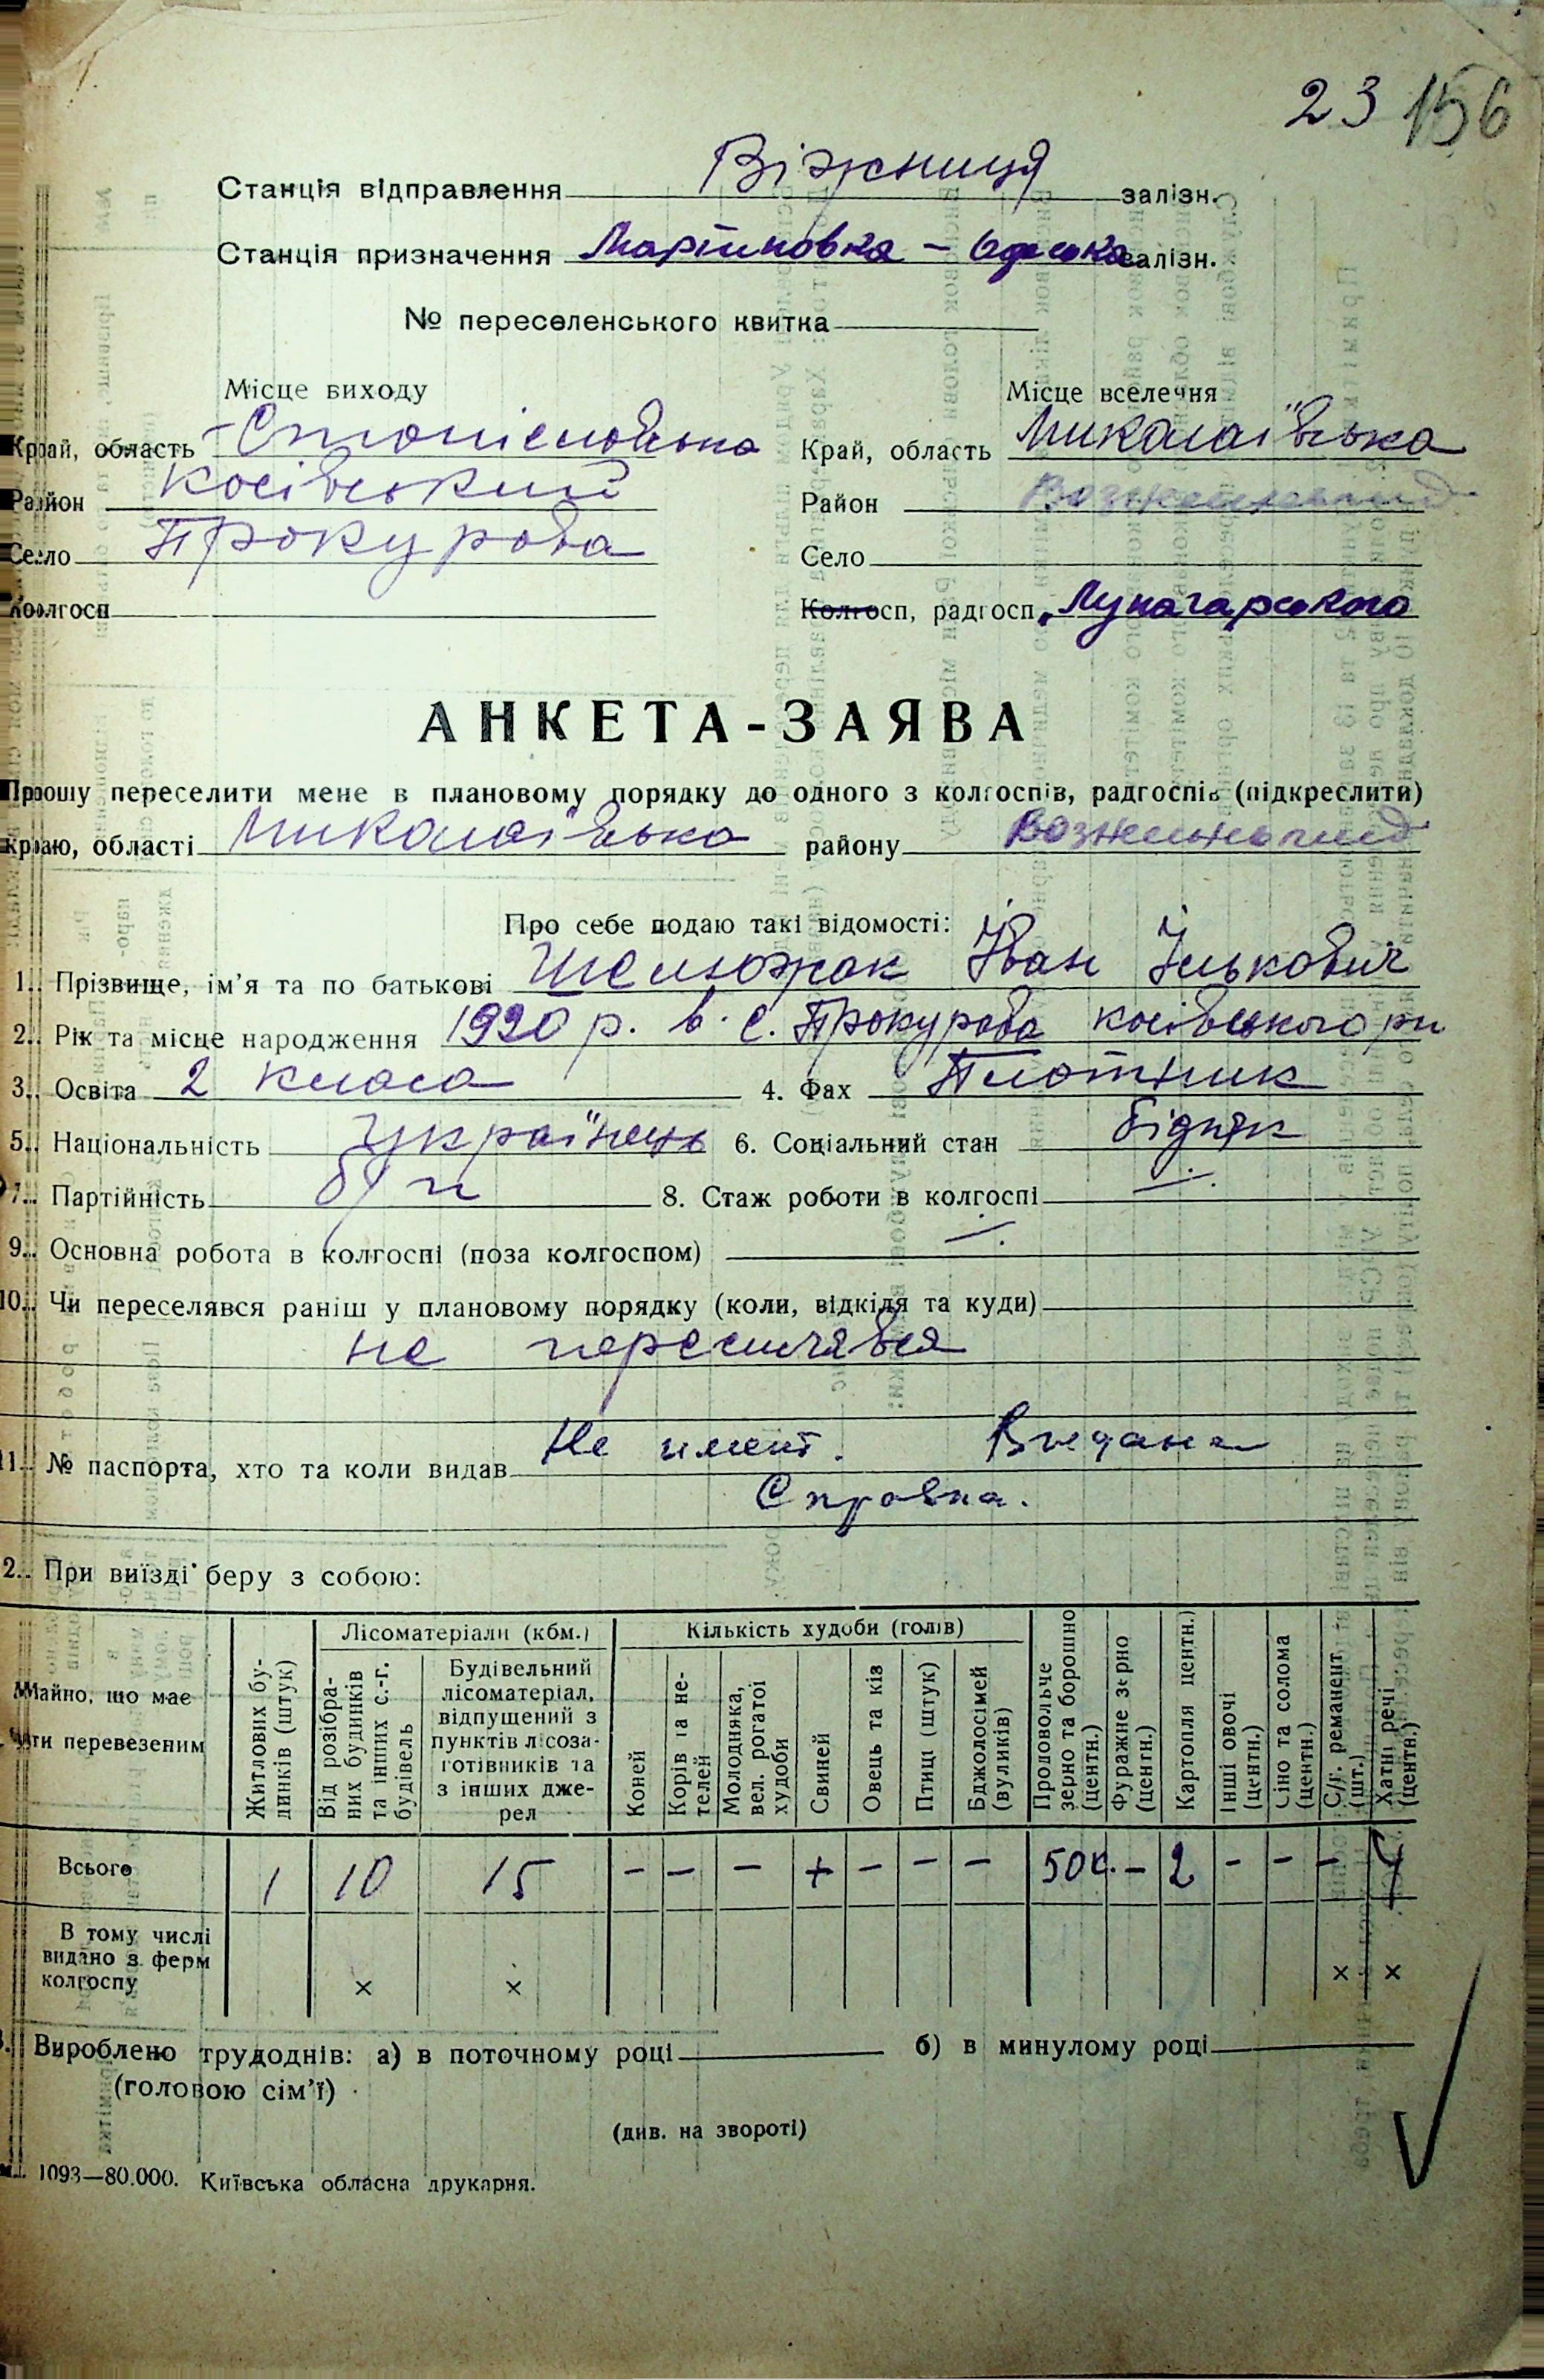 23 156
Станція відправлення Віжниця залізн.
Станція призначення Мартиновка - Одеська залізн.
№ переселенського квитка
Місце виходу Місце вселечня
Край, область Станіславська Край, область Миколаївська
Район Косівський Район
Село Прокурава Село
Колгосп Колгосп, радгосп Луначарського
АНКЕТА-ЗАЯВА
Прошу переселити мене в плановому порядку до одного з колгоспів, радгоспів (підкреслити)
краю, області Миколаївська району
Про себе подаю такі відомості:
1. Прізвище, ім'я та по батькові Шелюжак Іван Ількович
2. Рік та місце народження 1920 р. в. с. Прокурава Косівського рн
3. Освіта 2 класа 4. Фах Плотник
5. Національність Українець 6. Соціальний стан бідняк
7. Партійність б/п 8. Стаж роботи в колгоспі
9. Основна робота в колгоспі (поза колгоспом)
10. Чи переселявся раніш у плановому порядку (коли, відкіля та куди)
не переселявся
11. № паспорта, хто та коли видав Не имеет. Видана
Справка.
2. При виїзді беру з собою:
Майно, що має
бути перевезеним
Житлових бу-
динків (штук)
Лісоматеріали (кбм.)
Від розібра-
них будинків
та інших с.-г.
будівель
Будівельний
лісоматеріал,
відпущений з
пунктів лісоза-
готівників та
з інших дже-
рел
Кількість худоби (голів)
Коней
Корів та не-
телей
Молодняка,
вел. рогатої
худоби
Свиней
Овець та кіз
Птиці (штук)
Бджолосімей
(вуликів)
Продовольче
зерно та борошно
(центн.)
Фуражне зерно
(центн.)
Картопля центн.)
Інші овочі
(центн.)
Сіно та солома
(центн.)
С/г. реманент
(шт.)
Хатні речі
(центн.)
Всього 1 10 15 - - - + - - - 50к. - 2 - - - 4
В тому числі
видано з ферм
колгоспу × × × ×
Вироблено трудоднів: а) в поточному році б) в минулому році
(головою сім'ї)
(див. на звороті)
1093—80.000. Київська обласна друкарня.